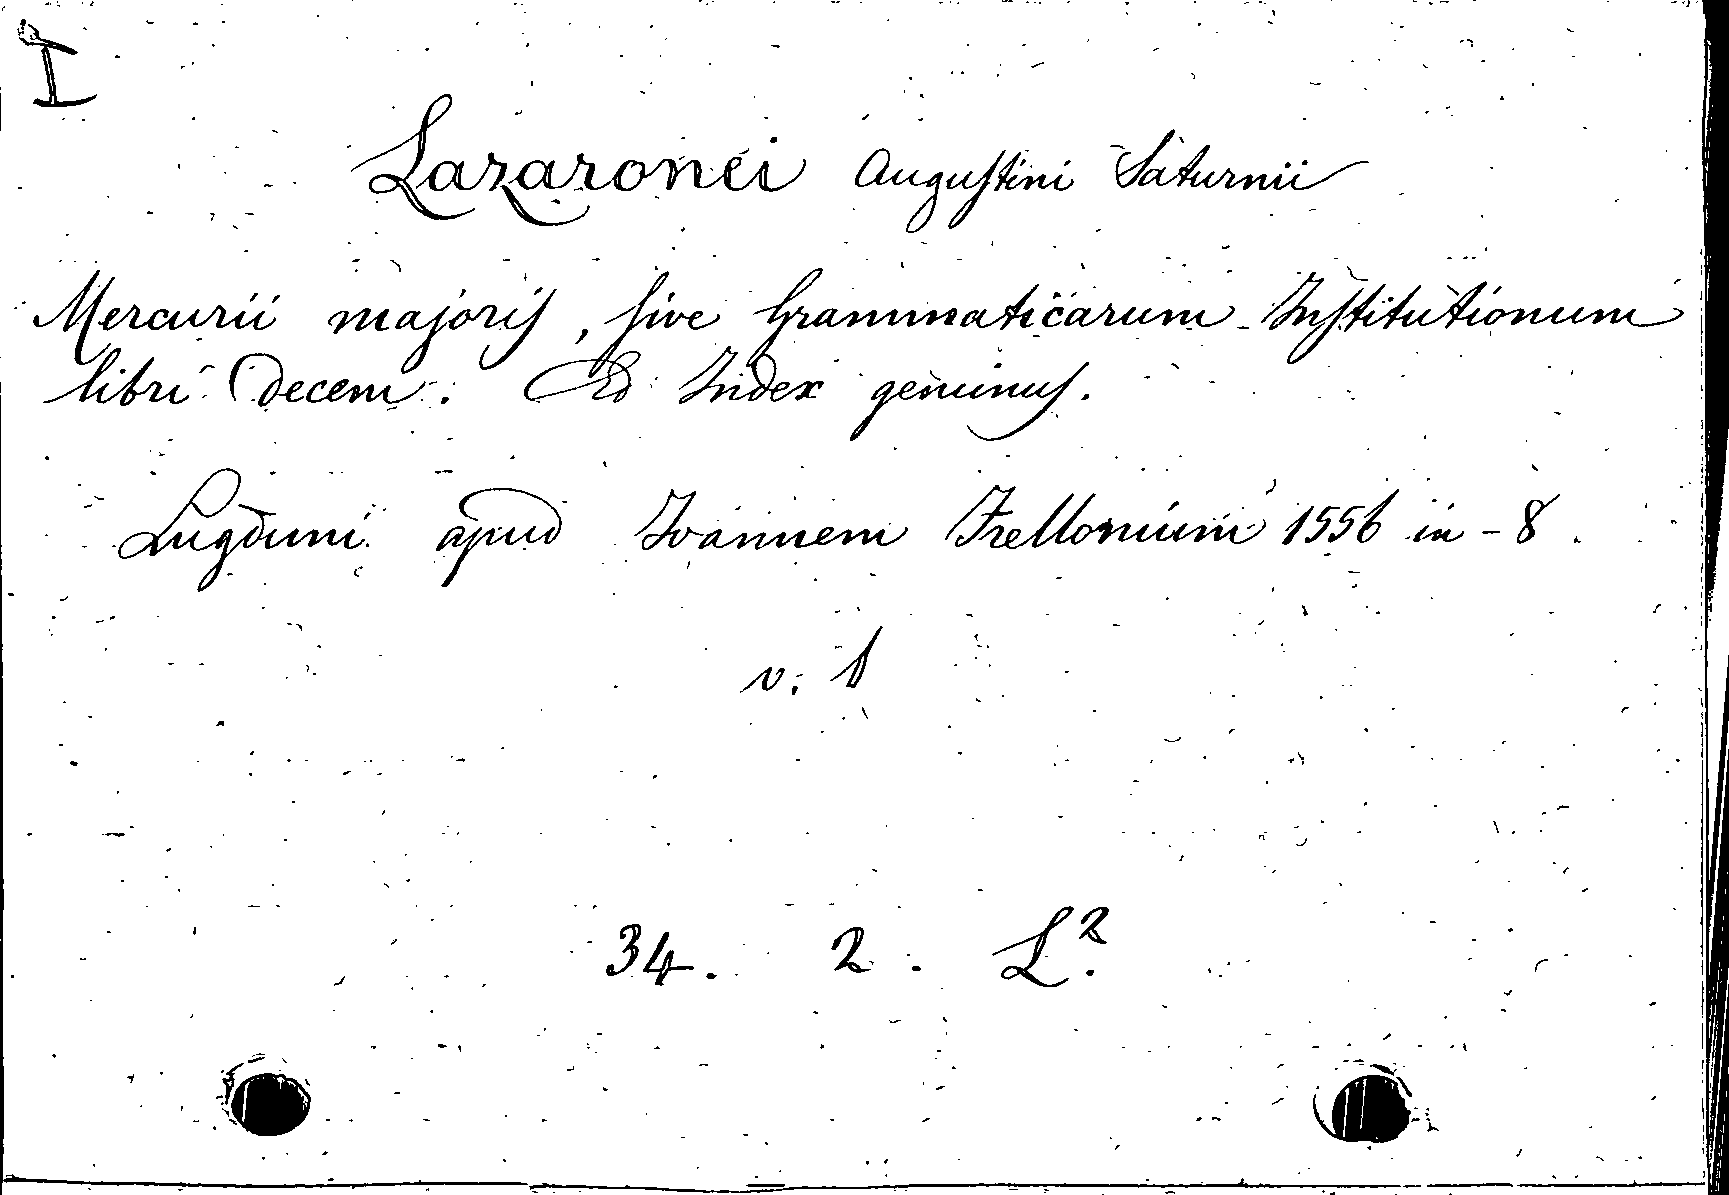 I
Lazaronei Augustini Saturnii
Mercurii majoris, sive Grammaticarum Institutionum
libri decem. Ed Index geminus.
Lugduni apud Ioannem Frellonium 1556 in-8.
v. 1
34. 2. L².